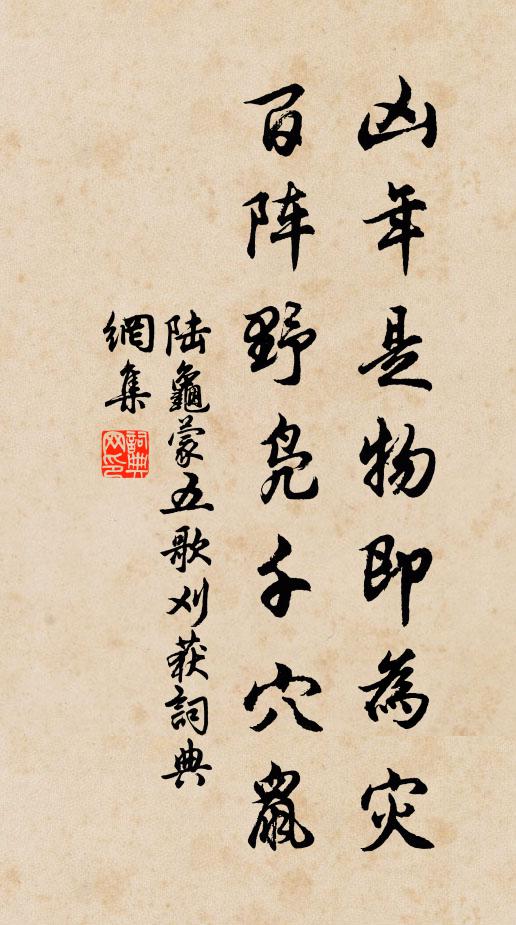 凶年是物即為灾
百阵野凫千穴鼠
陆龜蒙五歌刈获詞典
網集
詞典网印